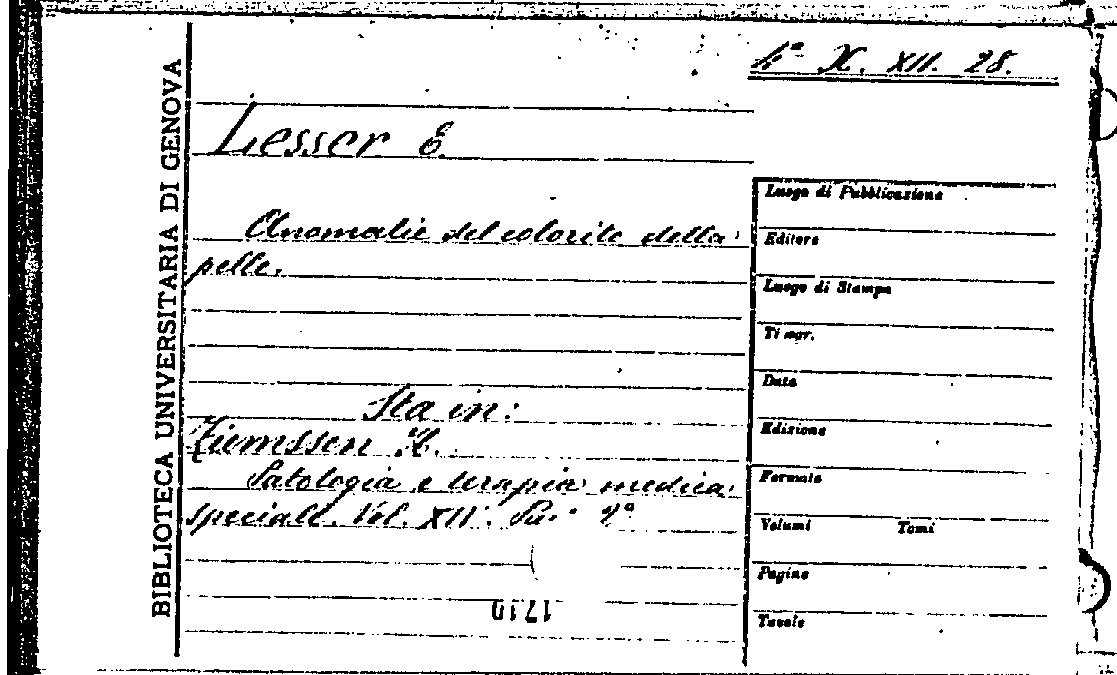 BIBLIOTECA UNIVERSITARIA DI GENOVA
4ª X. XII. 28.
Lesser E.
Anomalie del colorito della
pelle.
Sta in:
Ziemssen H.
Patologia e terapia medica
speciale. Vol. XIV. 2ª
1710
Luogo di Pubblicazione
Editore
Luogo di Stampa
Data
Edizione
Formato
Volumi Tomi
Pagine
Tavole